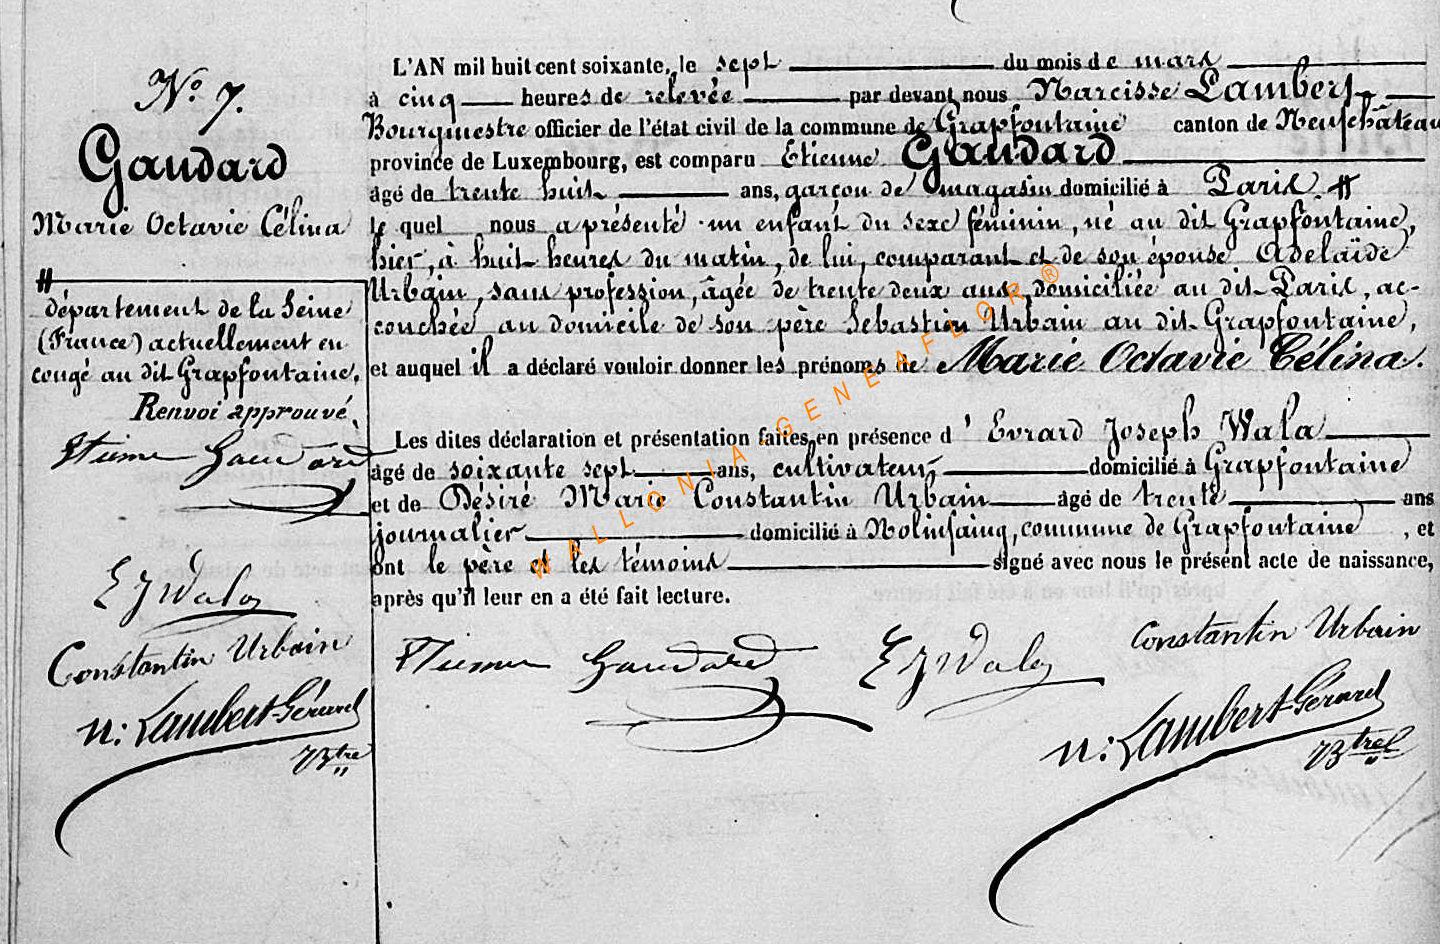 N° 7.
Gaudard
Marie Octavie Célina
#
département de la Seine
(France) actuellement en
congé au dit Grapfontaine.
Renvoi approuvé.
Etienne Gaudard
E J Wala
Constantin Urbain
N: Lambert-Gérard
Btre
L'AN mil huit cent soixante, le sept du mois de mars
à cinq heures de relevée par devant nous Narcisse Lambert
Bourgmestre officier de l'état civil de la commune de Grapfontaine canton de Neufchâteau
province de Luxembourg, est comparu Etienne Gaudard
âgé de trente huit ans, garçon de magasin domicilié à Paris #
le quel nous a présenté un enfant du sexe féminin, né au dit Grapfontaine,
hier, à huit heures du matin, de lui, comparant et de son épouse Adelaïde
Urbain, sans profession, âgée de trente deux ans, domiciliée au dit Paris, ac-
couchée au domicile de son père Sébastien Urbain au dit Grapfontaine,
et auquel il a déclaré vouloir donner les prénoms de Marie Octavie Célina.
Les dites déclaration et présentation faites, en présence d'Evrard Joseph Wala
âgé de soixante sept ans, cultivateur, domicilié à Grapfontaine
et de Désiré Marie Constantin Urbain âgé de trente ans
journalier domicilié à Nolinfaing, commune de Grapfontaine, et
ont le père et les témoins signé avec nous le présent acte de naissance,
après qu'il leur en a été fait lecture.
Etienne Gaudard
E J Wala
Constantin Urbain
N: Lambert-Gérard
WALLONIA-GENEAFLOR®